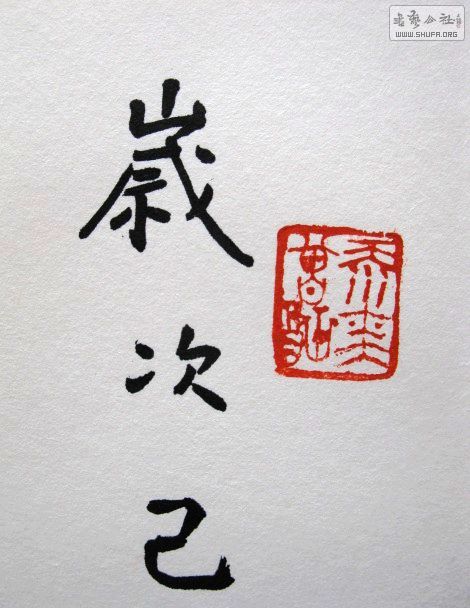 書藝公社
WWW.SHUFA.ORG
歳次己